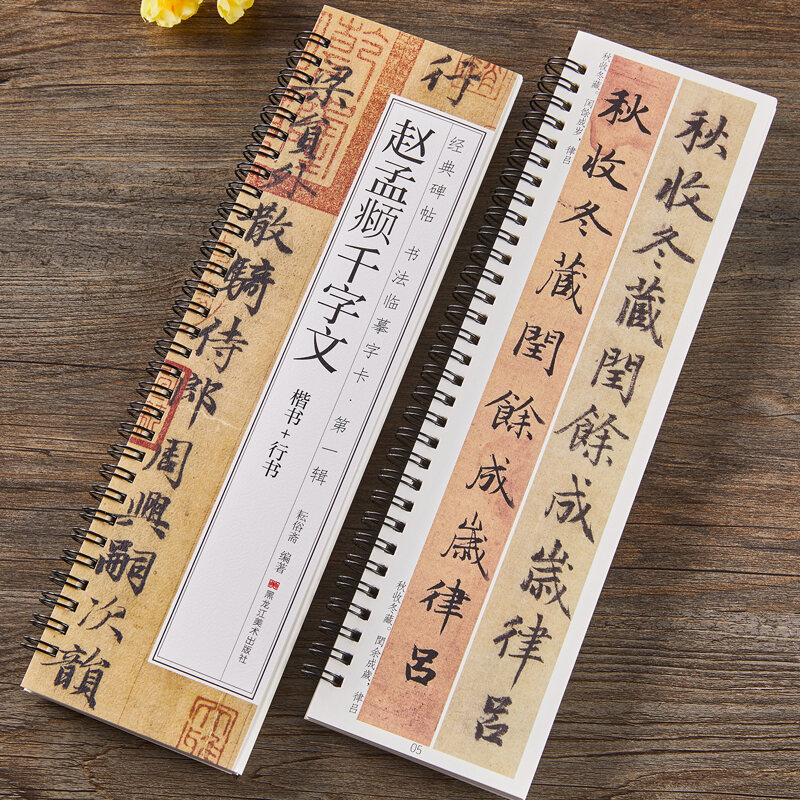 行
梁員外散騎侍郎周興嗣次韻
经典碑帖 书法临摹字卡·第一辑
赵孟頫千字文
楷书+行书
耘俗斋 编著
黑龙江美术出版社
秋收冬藏。闰馀成岁，律吕
秋收冬藏閏餘成歲律呂
秋收冬藏閏餘成歲律呂
秋收冬藏。閏余成歲，律吕
05